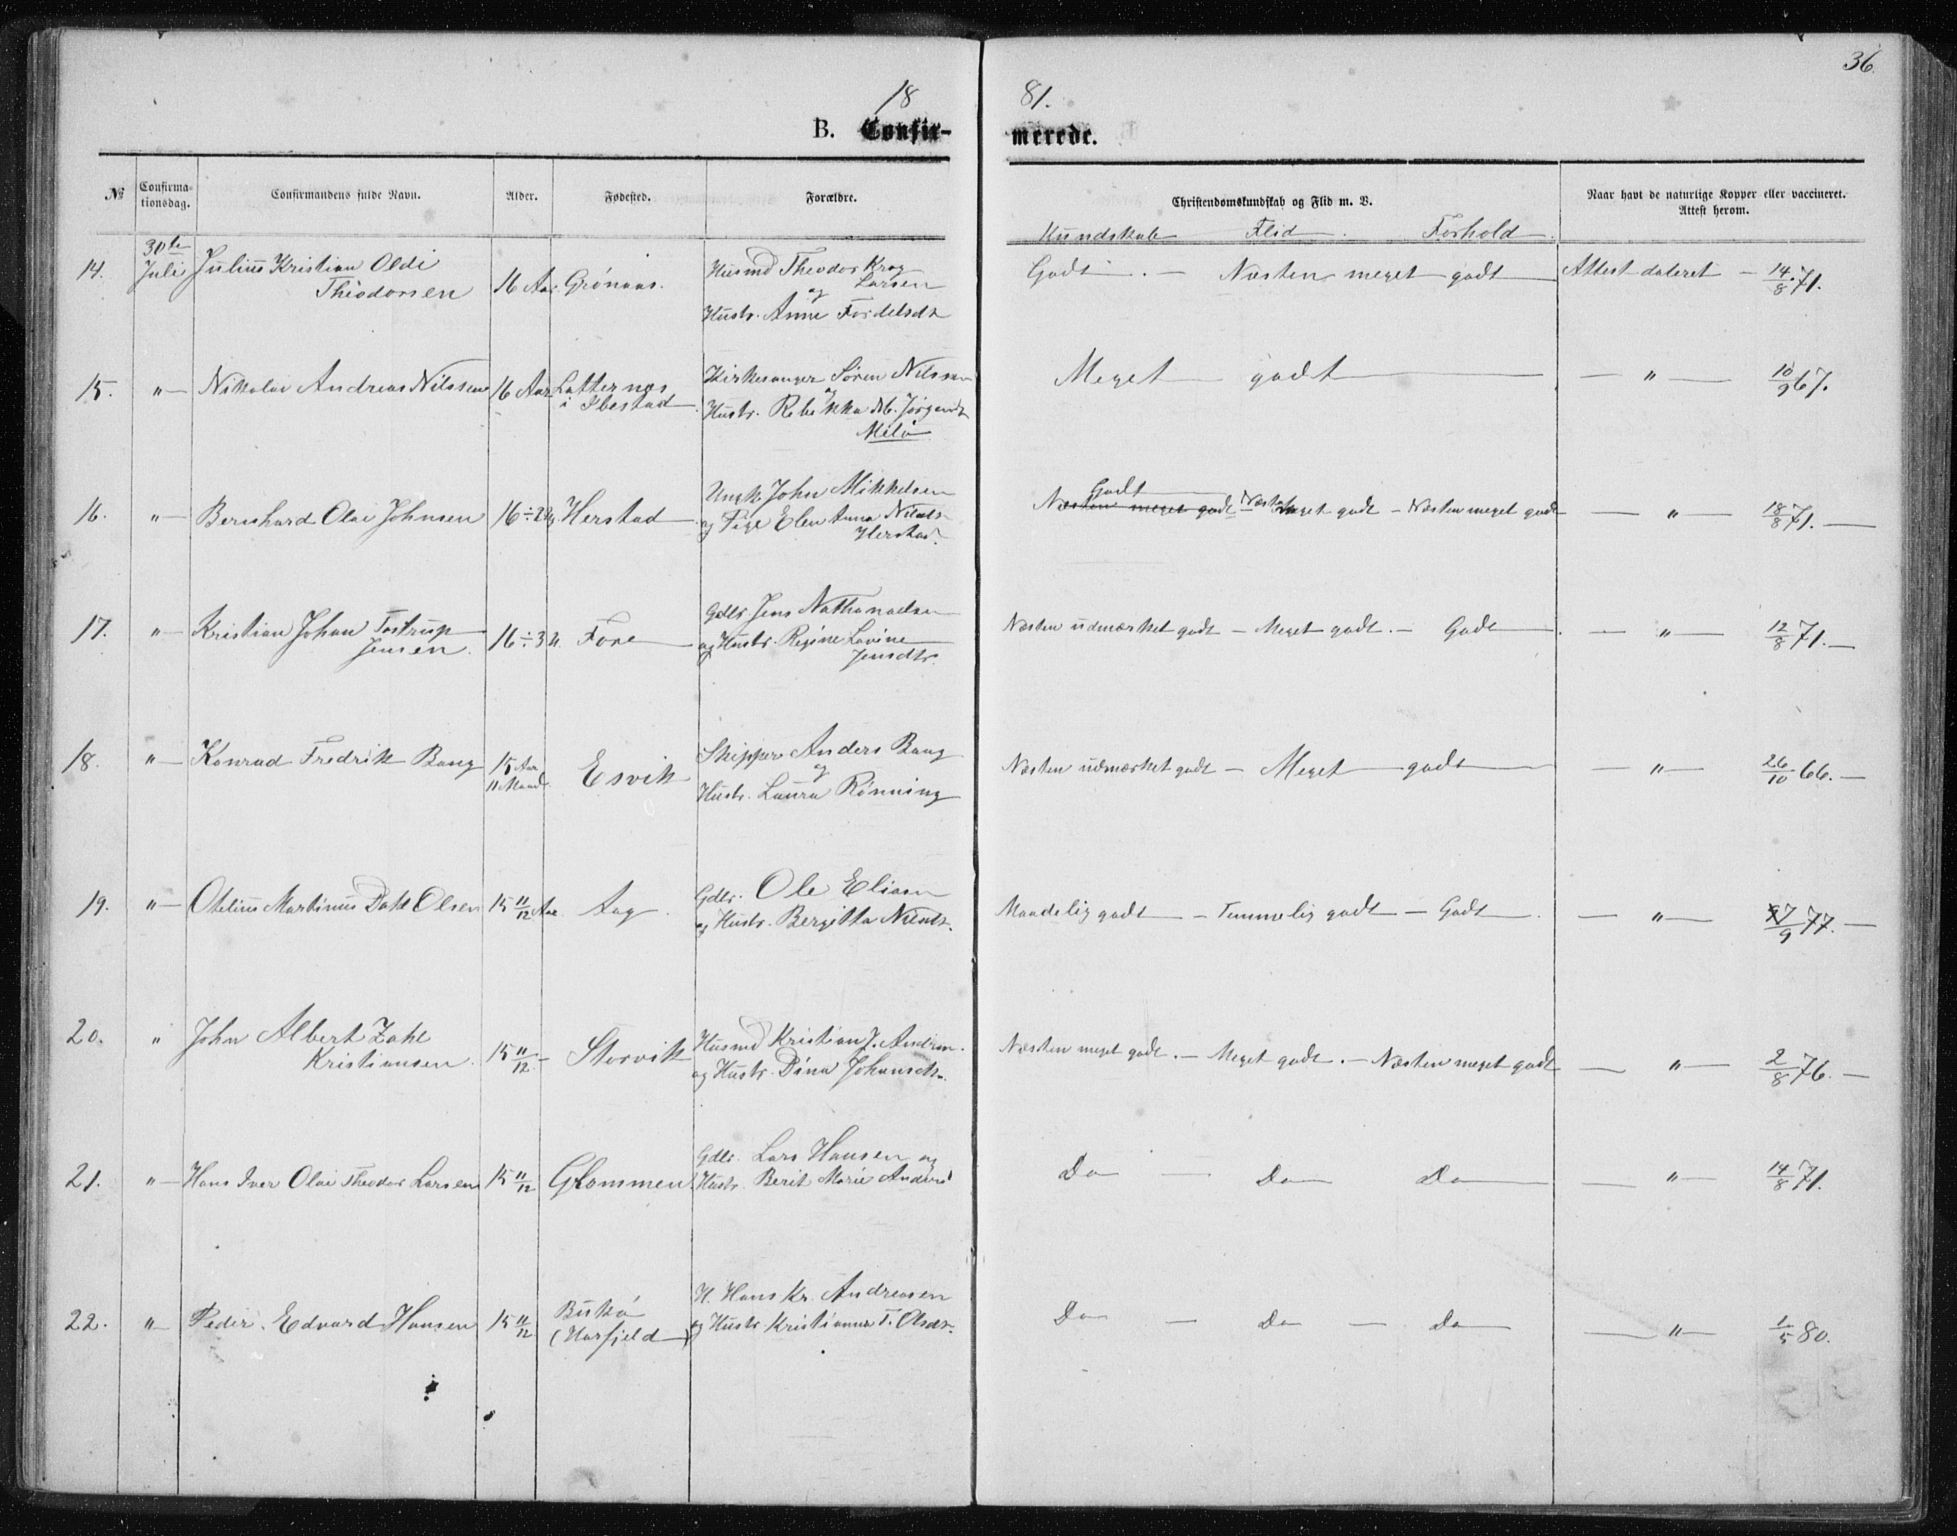 36.
18 81.
B. Confir- merede.
№ Confirma-tionsdag. Confirmandens fulde Navn. Alder. Fødested. Forældre. Christendomskundskab og Flid m. V. Naar havt de naturlige Kopper eller vaccineret. Attest herom.
Kundskab Flid. Forhold.
30te
14. Juli Julius Kristian Oldi Husmd Theodor Krog Godt. — Næsten meget godt Attest dateret — 14/8 71.
Theodorsen 16 Aar Grønaas. og Larsen
Hustr. Anne Tordelsdt
15. " — Nikolai Andreas Nilssen 16 Aar Latternes Kirkesanger Søren Nilssen Meget godt — " — 10/9 67.
i Ibestad og Hustr. Rebekka M. Jørgensd
Melø
16. " — Bernhard Olai Johnsen 16 ÷ Herstad Ungk. John Mikkelsen Godt
og Pige Elen Anna Nilsd. Næsten meget godt Næsten meget godt — Næsten meget godt — " — 18/8 71. —
Herstad.
17. " — Kristian Johan Tostrup Gdbr. Jens Nathanaelsen Næsten udmærket godt — Meget godt. — Godt. — " — 12/8 71. —
Jensen. 16 ÷ 3 u. Fore og Hustr. Regine Lovine
Jensdtr.
18. " — Konrad Fredrik Bang 15 Aar Esvik Skipper Anders Bang Næsten udmærket godt — Meget godt — " — 26/10 66. —
11 Maand og
Hustr. Laura Rønning
19. " — Otelius Martinus Dahl Olsen 15 11/12 Aar Aag. Gdbr. Ole Eliasen Maadelig godt — Temmelig godt — Godt. — " — 7/9 77. —
og Hustr. Bergitta Nilsdt.
20. " John Albert Zahl Husmd Kristian J. Andrsn. Næsten meget godt. — Meget godt. — Næsten meget godt — " — 2/8 76. —
Kristiansen. 15 11/12 — Storvik og Hustr. Dina Johansdt.
21. " — Hans Iver Olai Theodor Larsen 15 11/12 Glommen Gdbr. Lars Hansen og Do — Do Do — " — 14/8 71.
Hustr. Berit Marie Andersd
22. " Peder Edvard Hansen 15 11/12 Buskø H. Hans Kr. Andreasen Do — Do — Do — " — 1/5 80.
(Harfjeld) og Hustr Kristianna T. Olsdt.